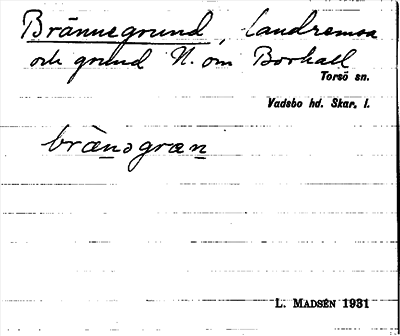 Brännegrund, landremsa
och grund N. om Borhall
Torsö sn.
Vadsbo hd. Skar. l.
bränəgræn
L. MADSÉN 1931